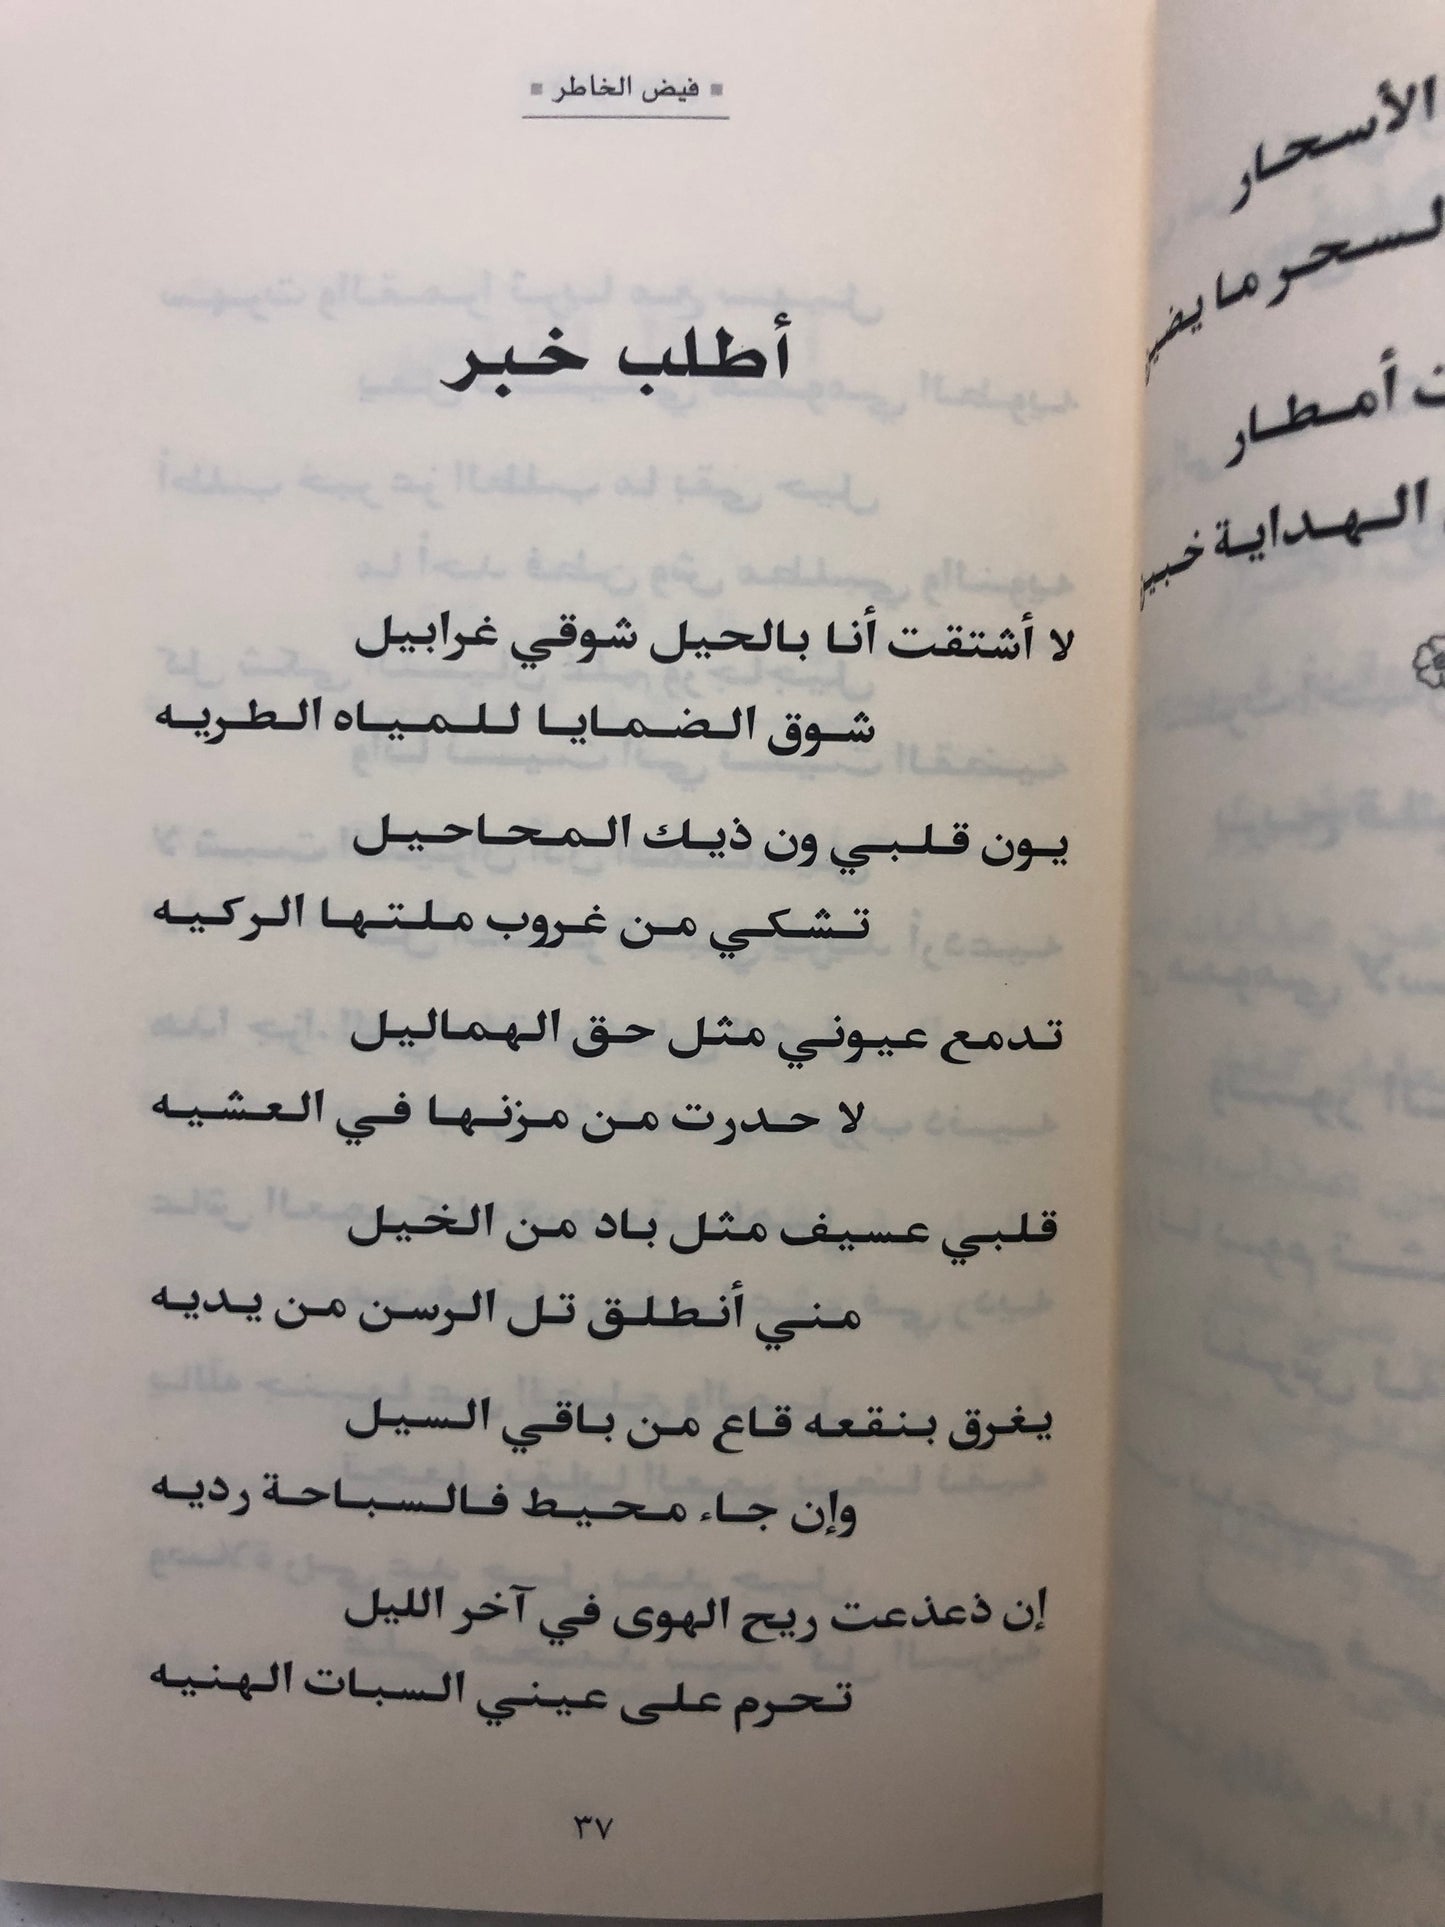 فيض الخاطر
أطلب خبر
لا أشتقت أنا بالحيل شوقي غرابيل
شوق الضمايا للمياه الطريه
يون قلبي ون ذيك المحاحيل
تشكي من غروب ملتها الركيه
تدمع عيوني مثل حق الهماليل
لا حدرت من مزنها في العشيه
قلبي عسيف مثل باد من الخيل
مني أنطلق تل الرسن من يديه
يغرق بنقعه قاع من باقي السيل
وإن جاء محيط فالسباحة رديه
إن ذعذعت ريح الهوى في آخر الليل
تحرم على عيني السبات الهنيه
٣٧
الأسحار
لسحر ما
ت أمطار
الهداية